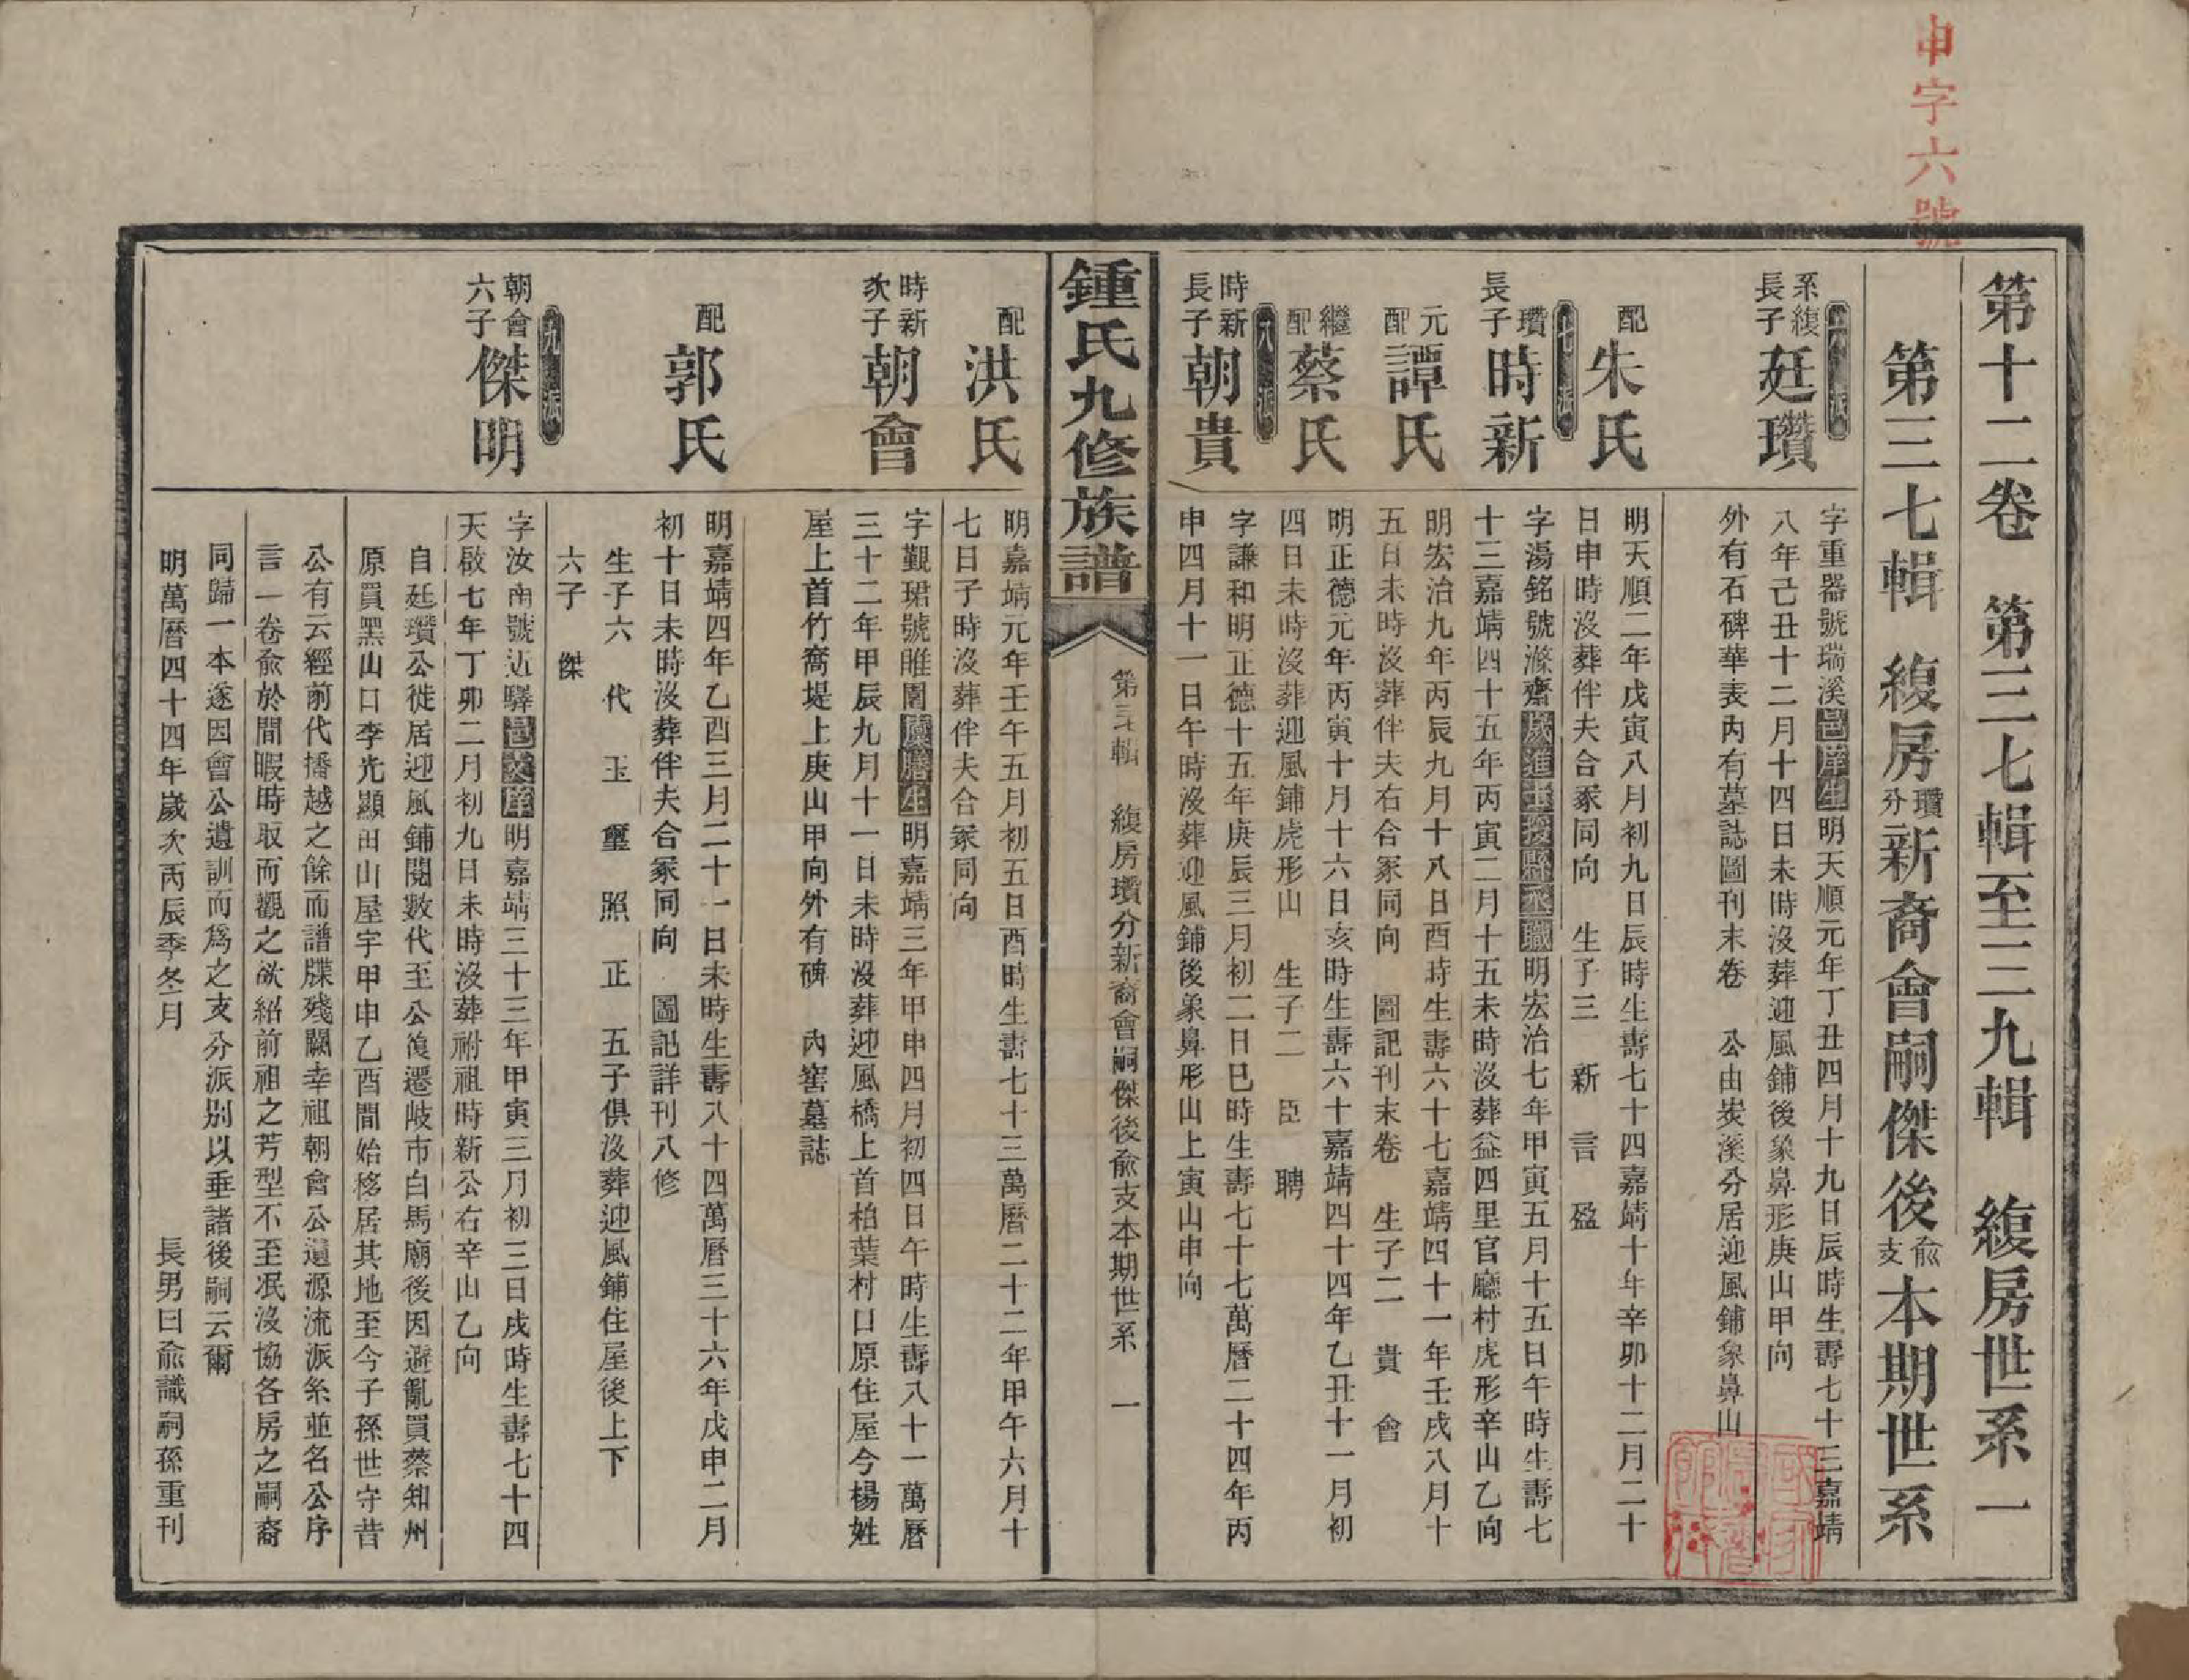 申字六號
第十二卷 第三七輯至三九輯 縗房世系一
第三七輯 縗房瓚分新裔會嗣傑後僉支本期世系
六派
系縗長子廷瓚
字重器號瑞溪邑庠生明天順元年丁丑四月十九日辰時生壽七十三嘉靖
八年己丑十二月十四日未時沒葬迎風鋪後象鼻形庚山甲向
外有石碑華表內有墓誌圖刊末卷 公由炭溪分居迎風鋪象鼻山
配朱氏
明天順二年戊寅八月初九日辰時生壽七十四嘉靖十年辛卯十二月二十
日申時沒葬伴夫合冢同向 生子三 新 言 盈
七派
瓚長子時新
字湯銘號滌齋歲進士授縣丞職明宏治七年甲寅五月十五日午時生壽七
十三嘉靖四十五年丙寅二月十五未時沒葬益四里官廳村虎形辛山乙向
元配譚氏
明宏治九年丙辰九月十八日酉時生壽六十七嘉靖四十一年壬戌八月十
五日未時沒葬伴夫右合冢同向 圖記刊末卷 生子二 貴 會
繼配蔡氏
明正德元年丙寅十月十六日亥時生壽六十嘉靖四十四年乙丑十一月初
四日未時沒葬迎風鋪虎形山 生子二 臣 聘
八派
時新長子朝貴
字謙和明正德十五年庚辰三月初二日巳時生壽七十七萬曆二十四年丙
申四月十一日午時沒葬迎風鋪後象鼻形山上寅山申向
鍾氏九修族譜
第三七輯 縗房瓚分新裔會嗣傑後僉支本期世系 一
配洪氏
明嘉靖元年壬午五月初五日酉時生壽七十三萬曆二十二年甲午六月十
七日子時沒葬伴夫合冢同向
時新次子朝會
字覲珺號睢園廩膳生明嘉靖三年甲申四月初四日午時生壽八十一萬曆
三十二年甲辰九月十一日未時沒葬迎風橋上首柏葉村口原住屋今楊姓
屋上首竹窩堤上庚山甲向外有碑 內窖墓誌
配郭氏
明嘉靖四年乙酉三月二十一日未時生壽八十四萬曆三十六年戊申二月
初十日未時沒葬伴夫合冢同向 圖記詳刊八修
生子六 代 玉 璽 照 正 五子俱沒葬迎風鋪住屋後上下
六子 傑
九派
朝會六子傑明
字汝南號近驛邑文庠明嘉靖三十三年甲寅三月初三日戌時生壽七十四
天啟七年丁卯二月初九日未時沒葬祔祖時新公右辛山乙向
自廷瓚公徙居迎風鋪閱數代至公復遷岐市白馬廟後因避亂買蔡知州
原買黑山口李光顯田山屋宇甲申乙酉間始移居其地至今子孫世守昔
公有云經前代播越之餘而譜牒殘闕幸祖朝會公遺源流派系並名公序
言一卷僉於間暇時取而觀之欲紹前祖之芳型不至泯沒協各房之嗣裔
同歸一本遂因會公遺訓而為之支分派別以垂諸後嗣云爾
明萬曆四十四年歲次丙辰季冬月 長男曰僉識嗣孫重刊